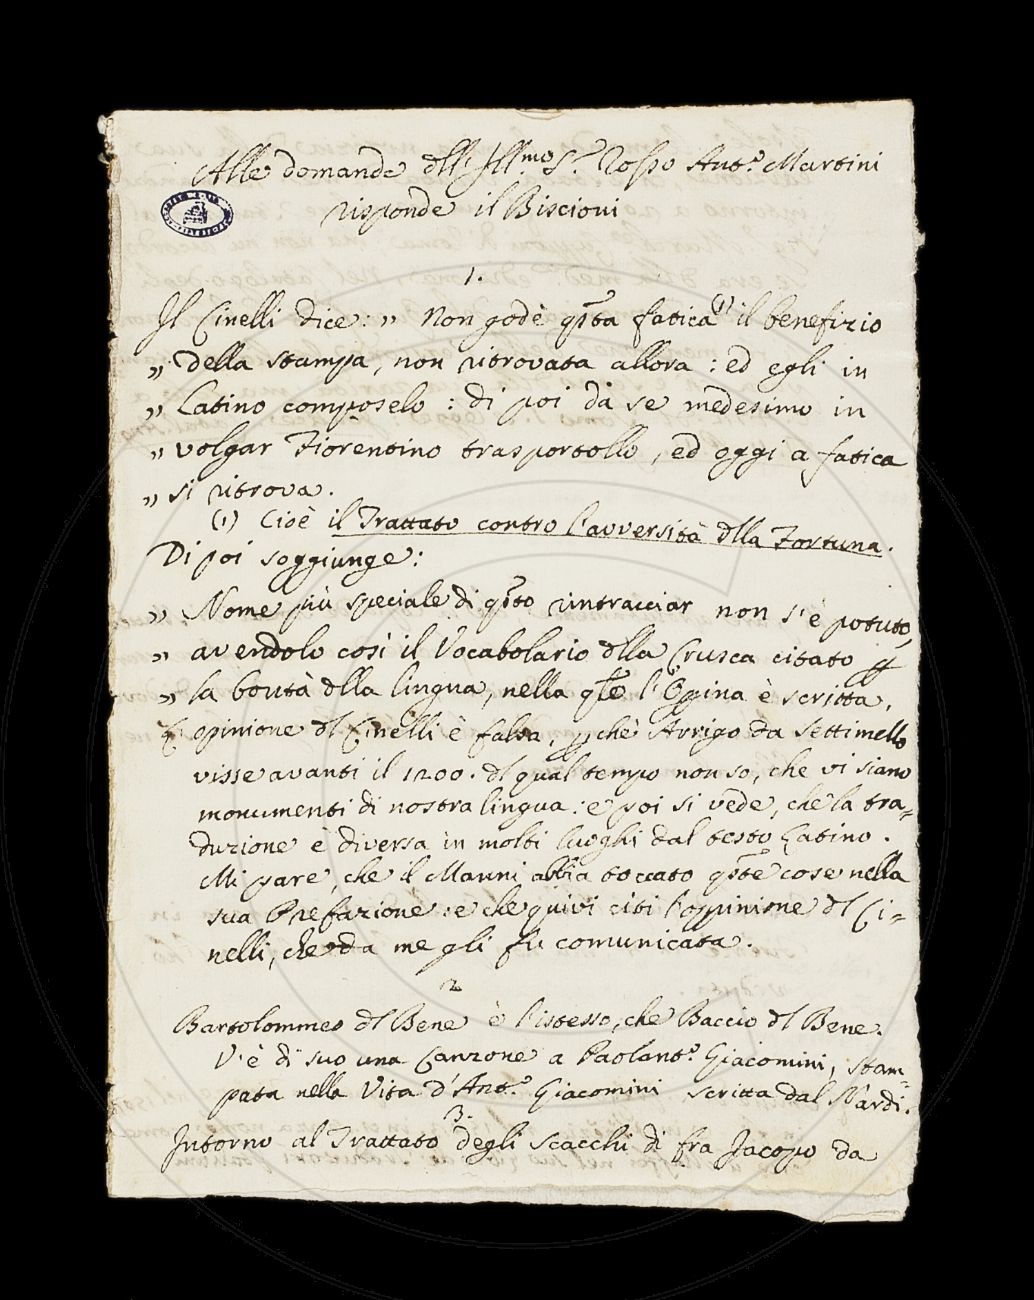 Alle domande dll' Ill.mo S.r Rosso Ant.o Martini
risponde il Biscioni
1.
Il Cinelli dice: „ Non godè qsta fatica (1) il benefizio
„ della stampa, non ritrovata allora: ed egli in
„ Latino composelo: di poi da se medesimo in
„ volgar Fiorentino trasportollo, ed oggi a fatica
„ si ritrova.
(1) Cioè il Trattato contro l'avversità dlla Fortuna.
Di poi soggiunge:
„ Nome più speciale di qsto rintracciar non s'è potuto,
„ avendolo così il Vocabolario dlla Crusca citato p
„ la bontà dlla lingua, nella qle l'Opina è scritta.
L' opinione dl Cinelli è falsa, pchè Arrigo da Settimello
visse avanti il 1200. dl qual tempo non so, che vi siano
monumenti di nostra lingua: e poi si vede, che la tra=
duzione è diversa in molti luoghi dal testo Latino.
Mi pare, che il Manni abbia toccato qste cose nella
sua Prefazione: e che quivi citi l'oppinione dl Ci=
nelli, che da me gli fu comunicata.
2
Bartolommeo dl Bene è l'istesso, che Baccio dl Bene.
V'è di suo una Canzone a Paolant.o Giacomini, stam=
pata nella Vita d'Ant.o Giacomini scritta dal Nardi.
3.
Intorno al Trattato degli scacchi di fra Jacopo da